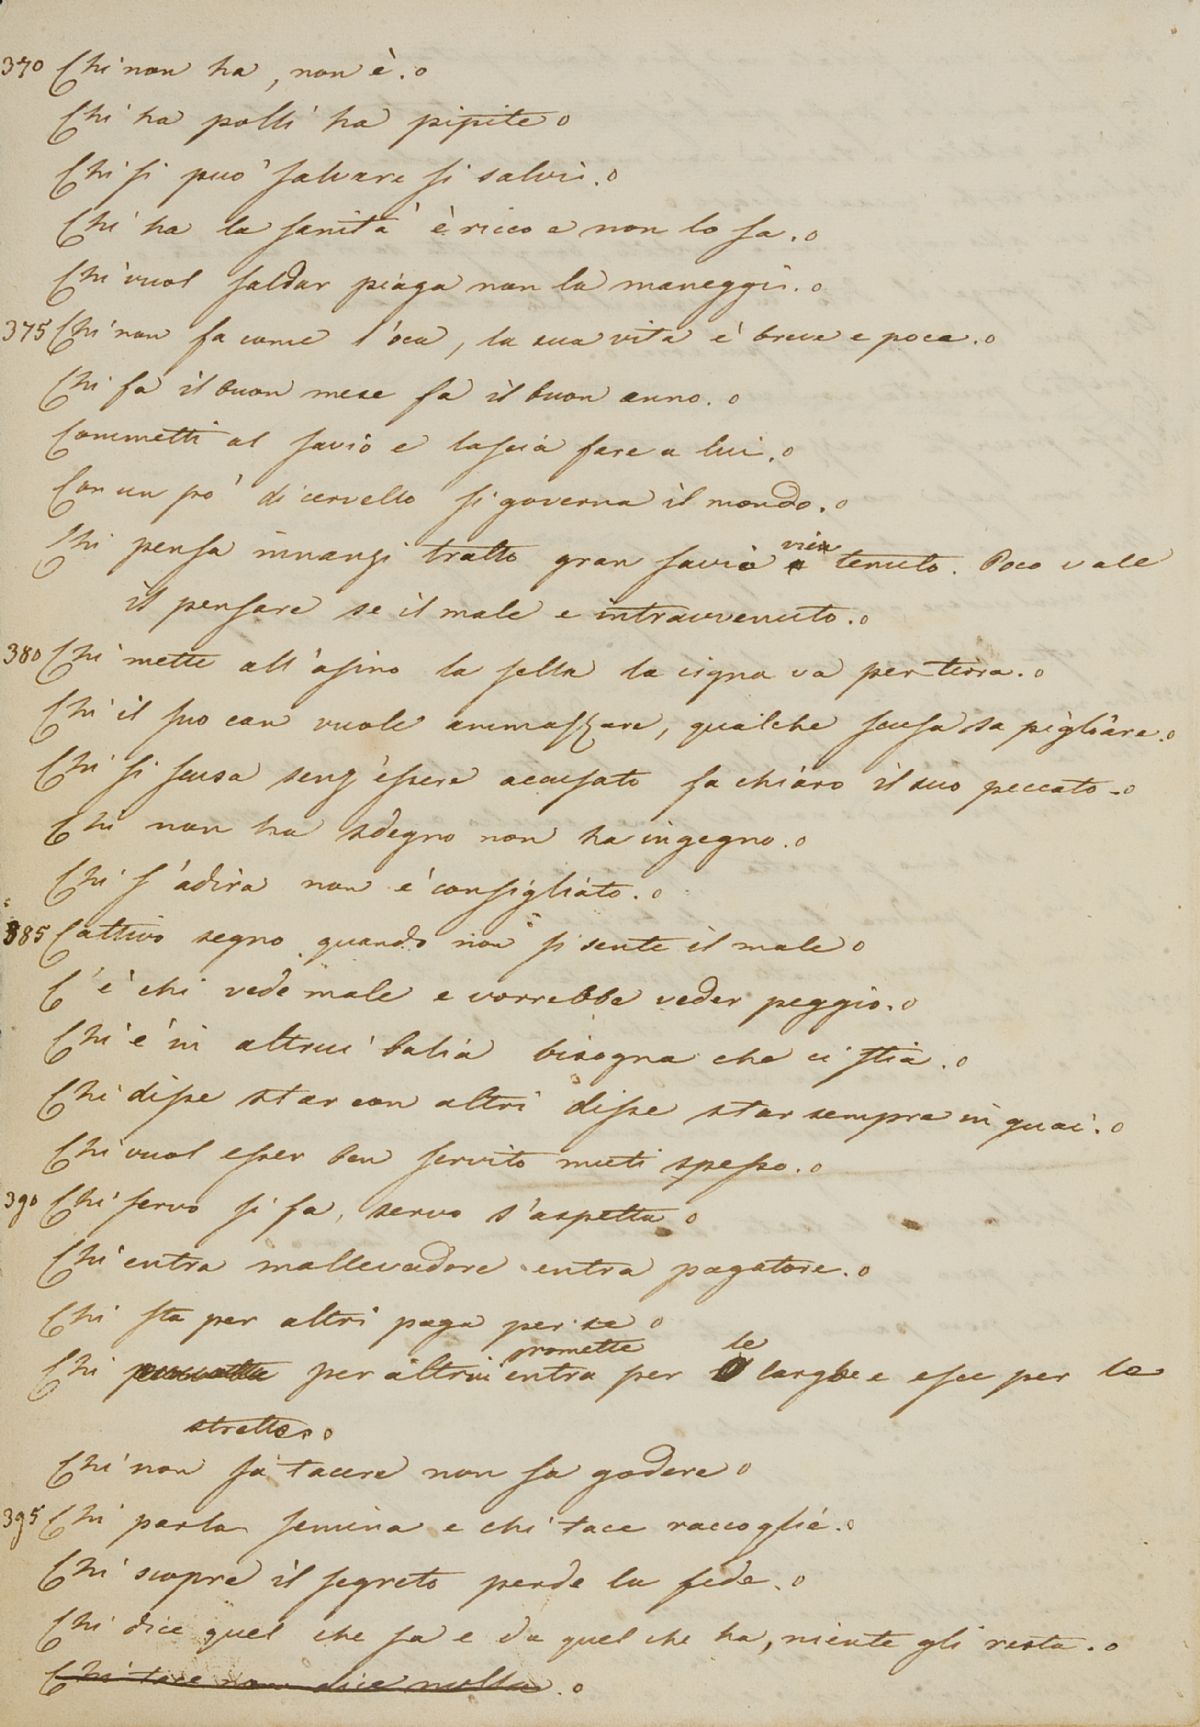 370 Chi non ha, non è. o
Chi ha polli ha pipite o
Chi si può salvare si salvi. o
Chi ha la sanità è ricco e non lo sa. o
Chi vuol saldar piaga non la maneggi. o
375 Chi non fa come l'oca, la sua vita è breve e poca. o
Chi fa il buon mese fa il buon anno. o
Commetti al savio e lascia fare a lui. o
Con un pò di cervello si governa il mondo. o
vien
Chi pensa innanzi tratto gran savio tenuto. Poco vale
il pensare se il male e intravvenuto. o
380 Chi mette all'asino la sella la cigna va per terra. o
Chi il suo can vuole ammazzare, qualche scusa sa pigliare. o
Chi si scusa senz'essere accusato fa chiaro il suo peccato. o
Chi non ha sdegno non ha ingegno. o
Chi s'adira non è consigliato. o
385 Cattivo segno quando non si sente il male o
C'è chi vede male e vorrebbe veder peggio. o
Chi è in altrui balia bisogna che ci stia. o
Chi disse star con altri disse star sempre in guai. o
Chi vuol esser ben servito muti spesso. o
390 Chi servo si fa, servo s'aspetta o
Chi entra mallevadore entra pagatore. o
Chi sta per altri paga per se o
promette le
Chi per altrui entra per larghe e esce per le
strette. o
Chi non sa tacere non sa godere o
395 Chi parla semina e chi tace raccoglie. o
Chi scopre il segreto perde la fede. o
Chi dice quel che sa e da quel che ha, niente gli resta. o
Chi tace non dice nulla. o